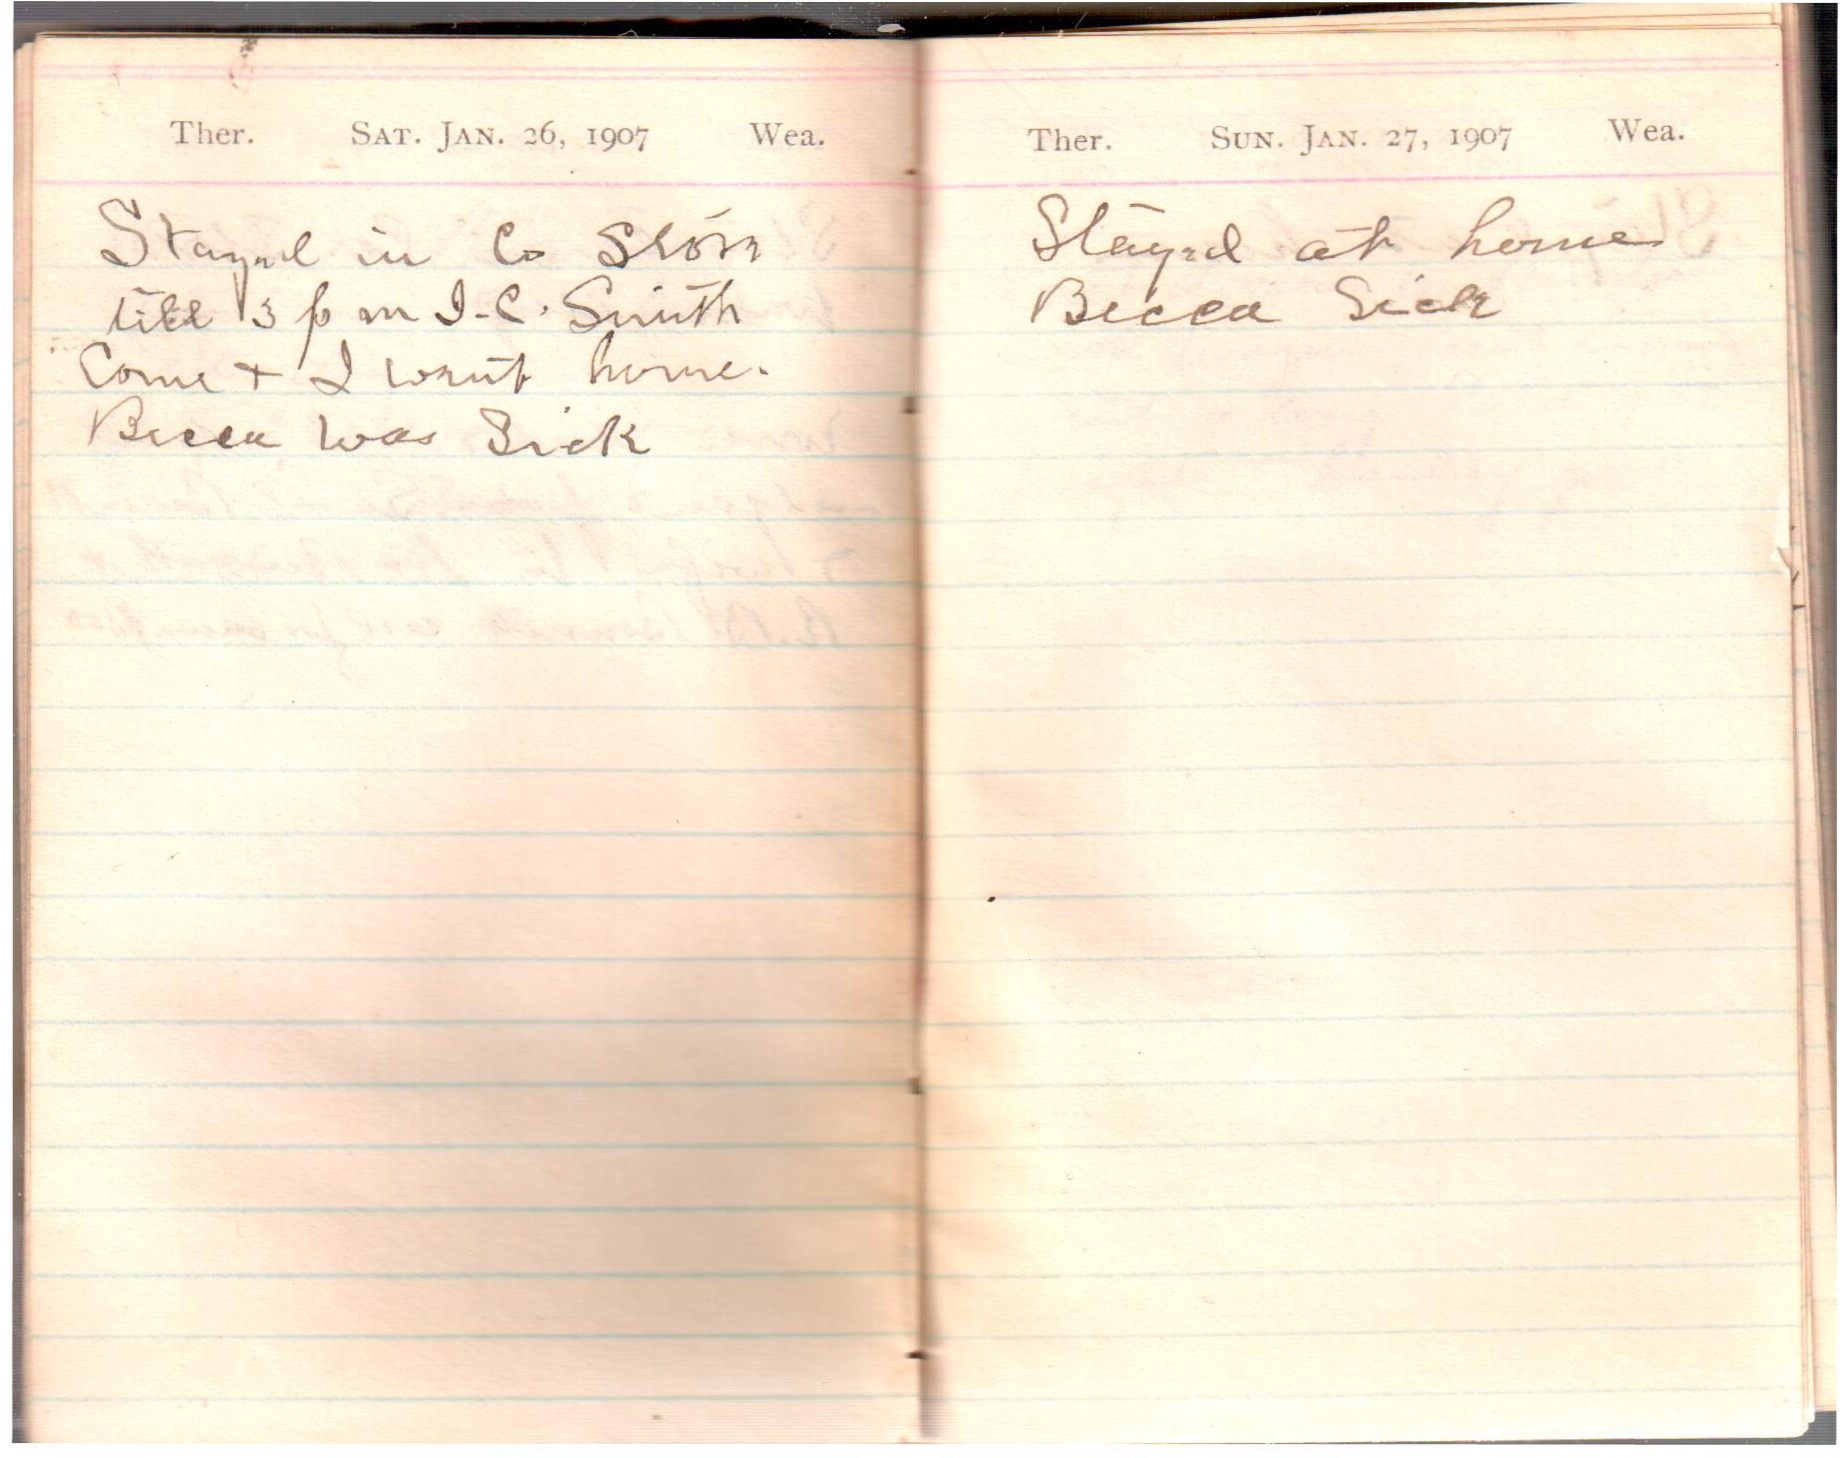 Ther. SAT. JAN. 26, 1907 Wea.
Stayed in Co Store
till 3 p m I. C. Smith
Come + I went home.
Becca was Sick
Ther. SUN. JAN. 27, 1907 Wea.
Stayed at home
Becca Sick